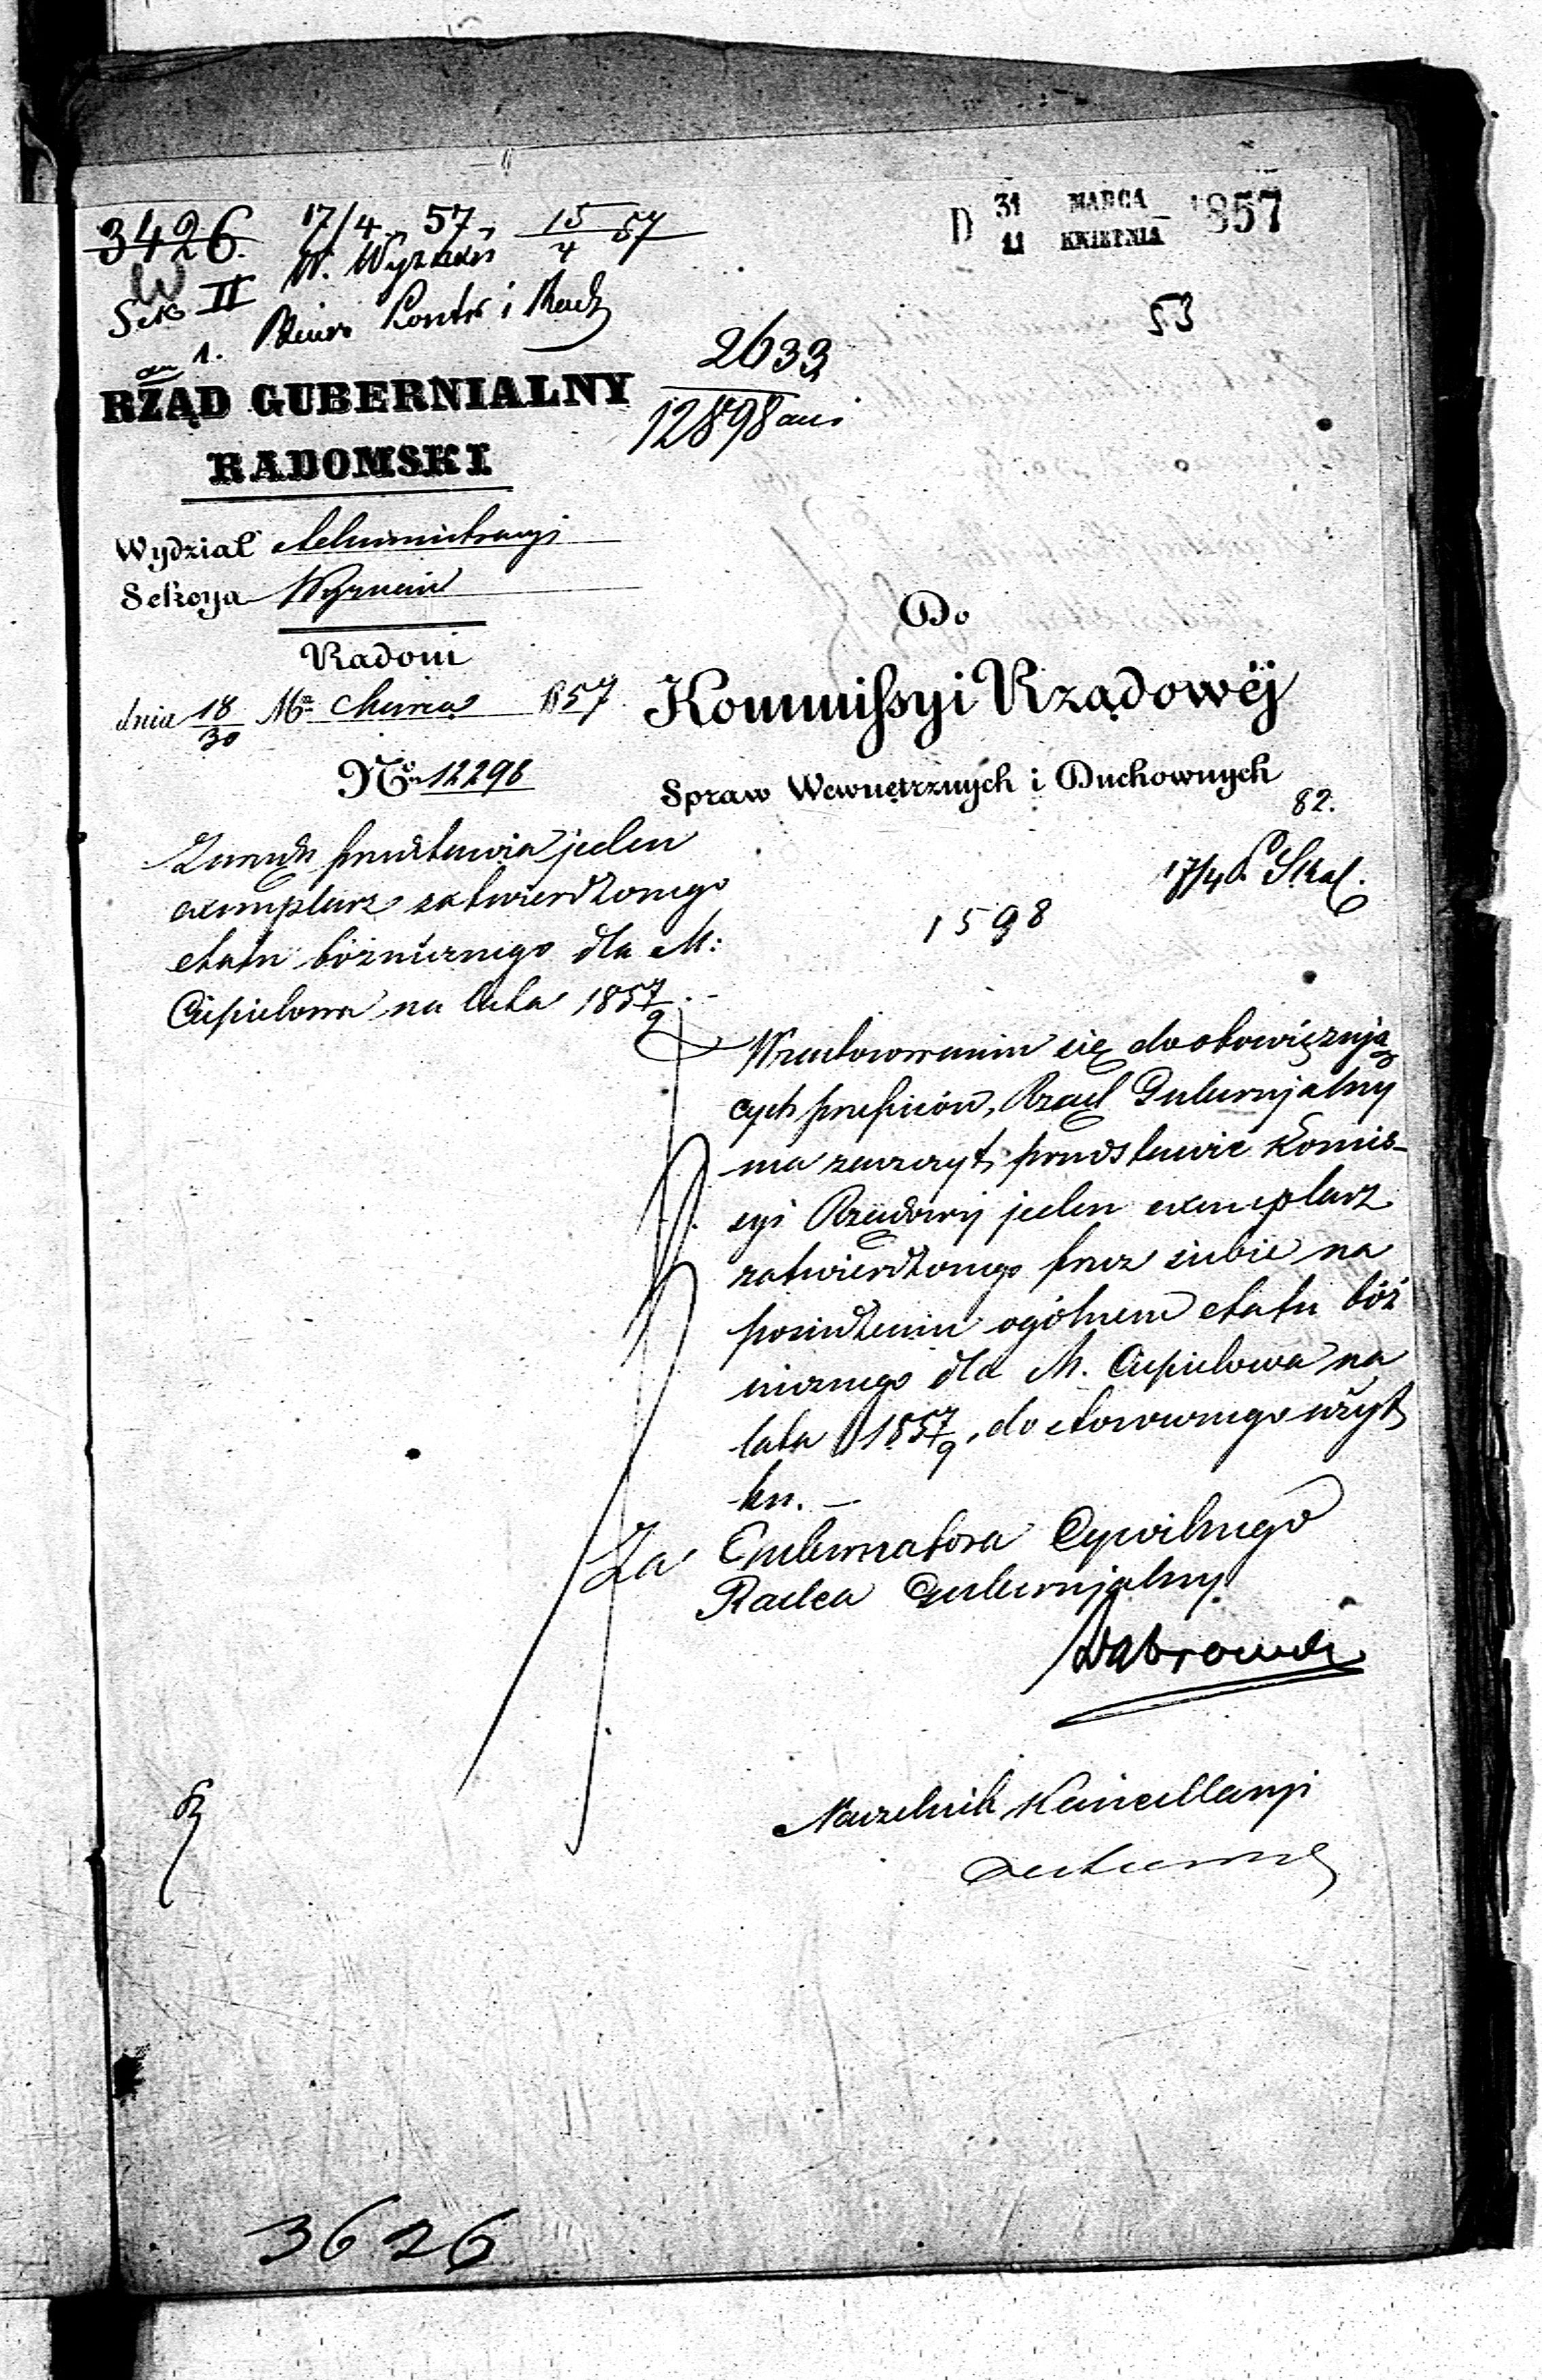 3426. 17/4 57 15/4 57
W W. Wyznań
Sek II
1. Biuro Kontr i Rach
D 31 MARCA
11 KWIETNIA 1857
53
2633
12898
RZĄD GUBERNIALNY
RADOMSKI
Wydział Administracyi
Sekcya Wyznań
Radom
dnia 18/30 Mca Marca 1857
No 12298
Do
Kommissyi Rządowéj
Spraw Wewnętrznych i Duchownych
82.
17/4 P. Skal.
1598
przedstawia jeden
exemplarz zatwierdzonego
etatu bóżniczego dla M:
Ciepielowa na lata 1857/9.-
W zastosowaniu się do obowiązują
cych przepisów, Rząd Gubernjalny
ma zaszczyt przedstawić Komis-
syi Rządowej jeden exemplarz
zatwierdzonego przez siebie na
posiedzeniu ogólnem etatu bóż
niczego dla M. Ciepielowa na
lata 1857/9, do stosownego użyt
ku. —
Za Gubernatora Cywilnego
Radca Gubernjalny
Dąbrowski
Naczelnik Kancellaryi
3626